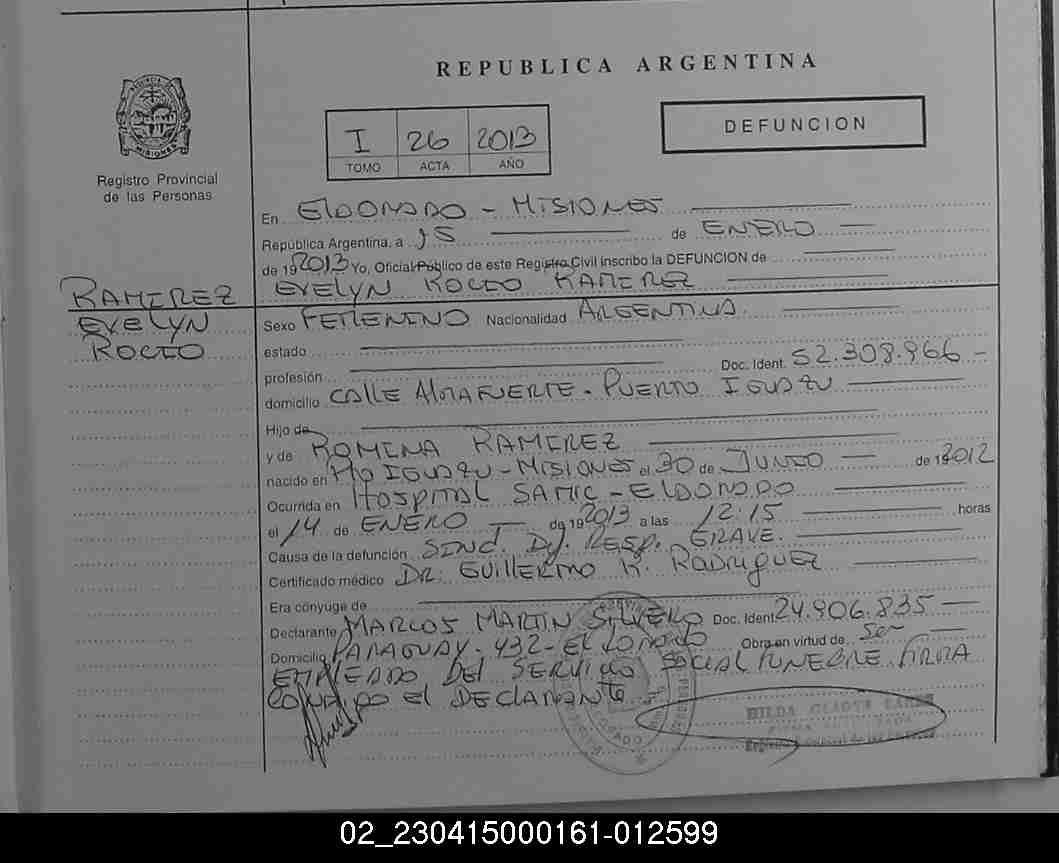 REPUBLICA ARGENTINA
PROVINCIA
MISIONES
Registro Provincial
de las Personas
I 26 2013
TOMO ACTA AÑO
DEFUNCION
En ELDORADO - MISIONES
República Argentina, a 15 de ENERO
de 19 2013 Yo, Oficial Público de este Registro Civil inscribo la DEFUNCION de
EVELYN ROCIO RAMIREZ
RAMIREZ
EVELYN
ROCIO
Sexo FEMENINO Nacionalidad ARGENTINA
estado
profesión Doc. Ident. 52.308.966 -
domicilio CALLE ALMAFUERTE - PUERTO IGUAZU
Hijo de
y de ROMINA RAMIREZ
nacido en PTO IGUAZU - MISIONES el 30 de JUNIO de 19 2012
Ocurrida en HOSPITAL SAMIC - ELDORADO
el 14 de ENERO de 19 2013 a las 12:15 horas
Causa de la defunción SIND. Dif. RESP. GRAVE.
Certificado médico DR. GUILLERMO R. RODRIGUEZ
Era cónyuge de
Declarante MARCOS MARTIN SILVERO Doc. Ident. 24.906.835
Domicilio PARAGUAY - 432 - ELDORADO Obra en virtud de Ser
EMPLEADO DEL SERVICIO SOCIAL FUNEBRE FIRMA
CONMIGO el DECLARANTE
HILDA GLADYS
02_230415000161-012599